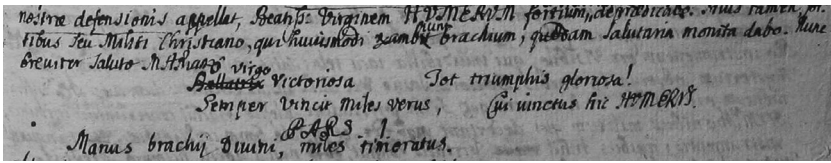 nostræ defensionis appellat, Beatiss: Virginem HUMERUM fortium, deprædicare. Huius tamen
tibus seu Militi Christiano, qui huiusmodi ambit brachium, quædam salutaria monita dabo. Nunc
breviter saluto MARIAM
O Virgo
Bellatrix Victoriosa Tot triumphis gloriosa!
Semper Vincit Miles verus, Cui vinctus hic HUMERUS.
PARS I.
Manus brachij Divini, miles timoratus.